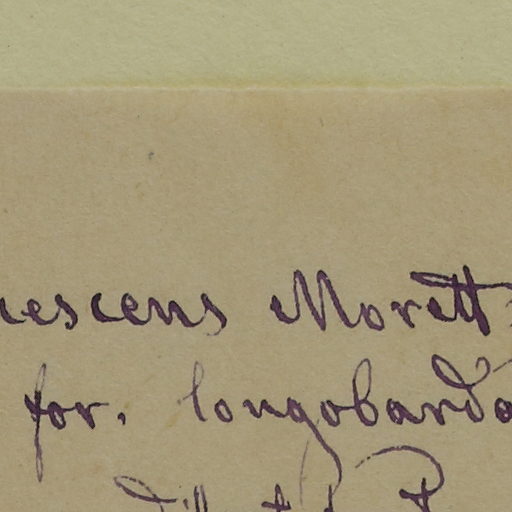 escens Morett
for. longobardo